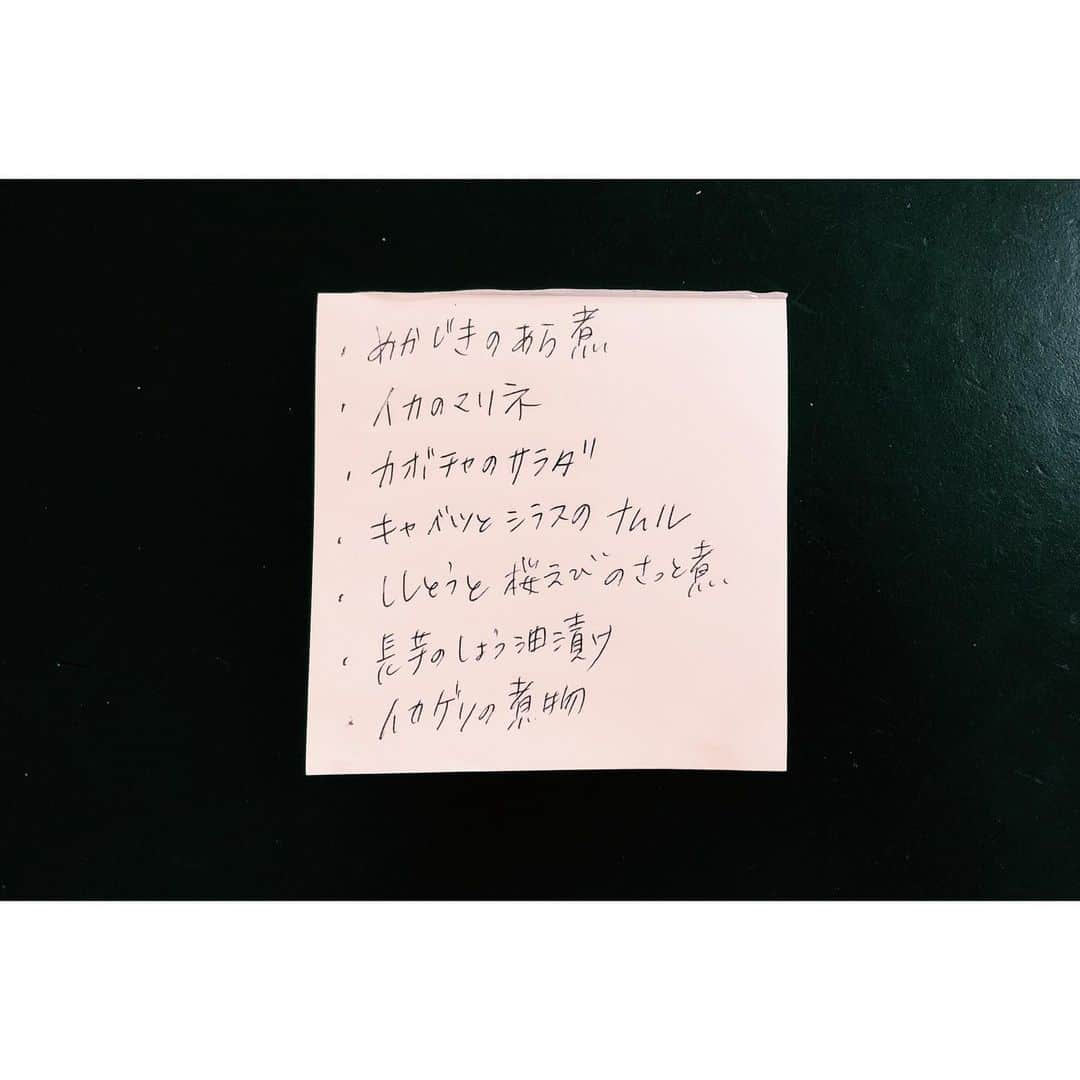 ・めかじきのあら煮
・イカのマリネ
・カボチャのサラダ
・キャベツとシラスのナムル
・ししとうと桜えびのさっと煮
・長芋のしょう油漬け
・イカゲソの煮物